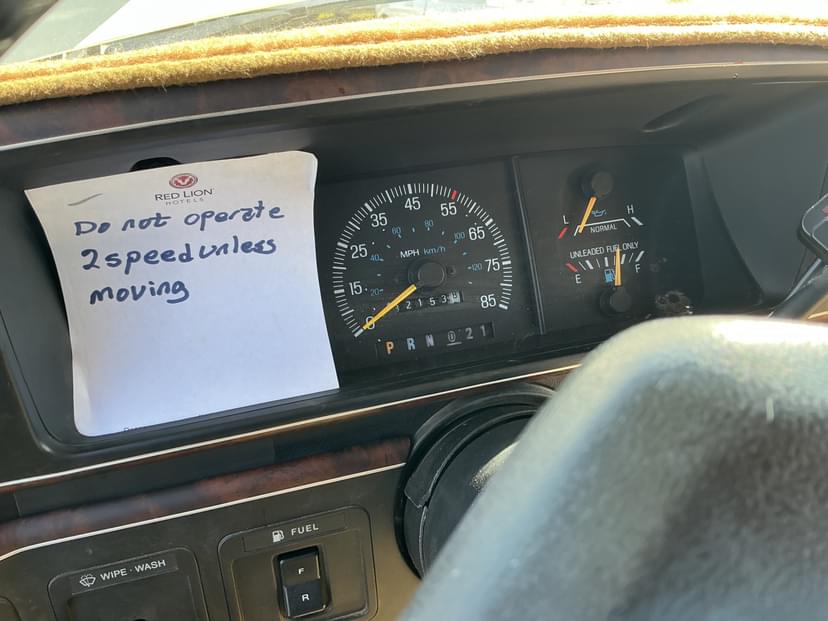 RED LION
HOTELS
Do not operate
2 speed unless
moving
15
25
35
45
55
65
75
85
20
40
60
80
100
120
MPH km/h
P R N D 2 1
L H
NORMAL
UNLEADED FUEL ONLY
E F
WIPE - WASH
FUEL
F
R